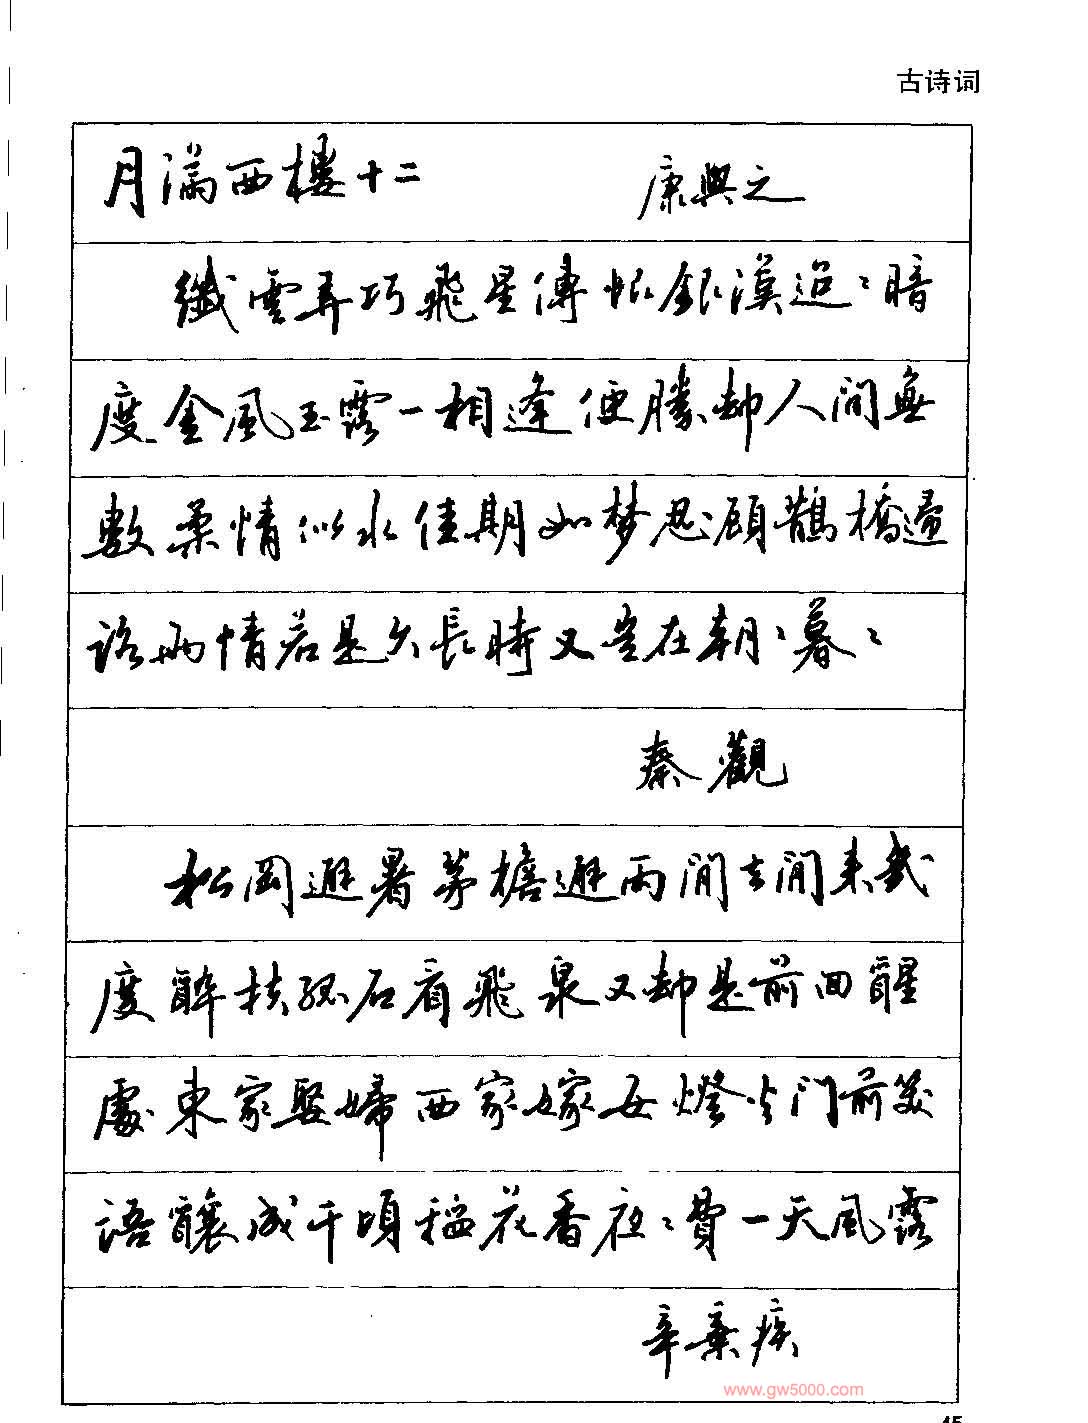 古诗词
月滿西樓十二
康與之
纖雲弄巧飛星傳恨銀漢迢〻暗
度金風玉露一相逢便勝却人間無
數柔情似水佳期如梦忍顧鵲橋歸
路兩情若是久長時又豈在朝〻暮〻
秦觀
松岡避暑茅檐避雨閒去閒来幾
度醉扶孤石看飛泉又却是前回醒
處東家娶婦西家嫁女燈火門前笑
語釀成千頃稻花香夜〻費一天風露
辛棄疾
www.gw5000.com
45